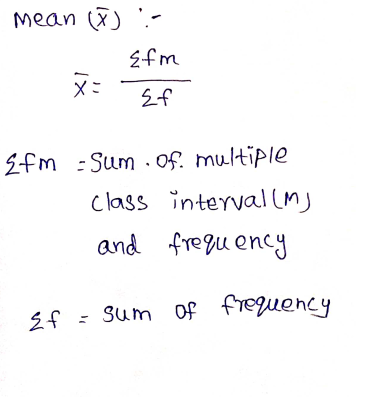 Mean (x̄) :-
x̄ = Σfm / Σf
Σfm = Sum . of. multiple
class interval (M)
and frequency
Σf = sum of frequency